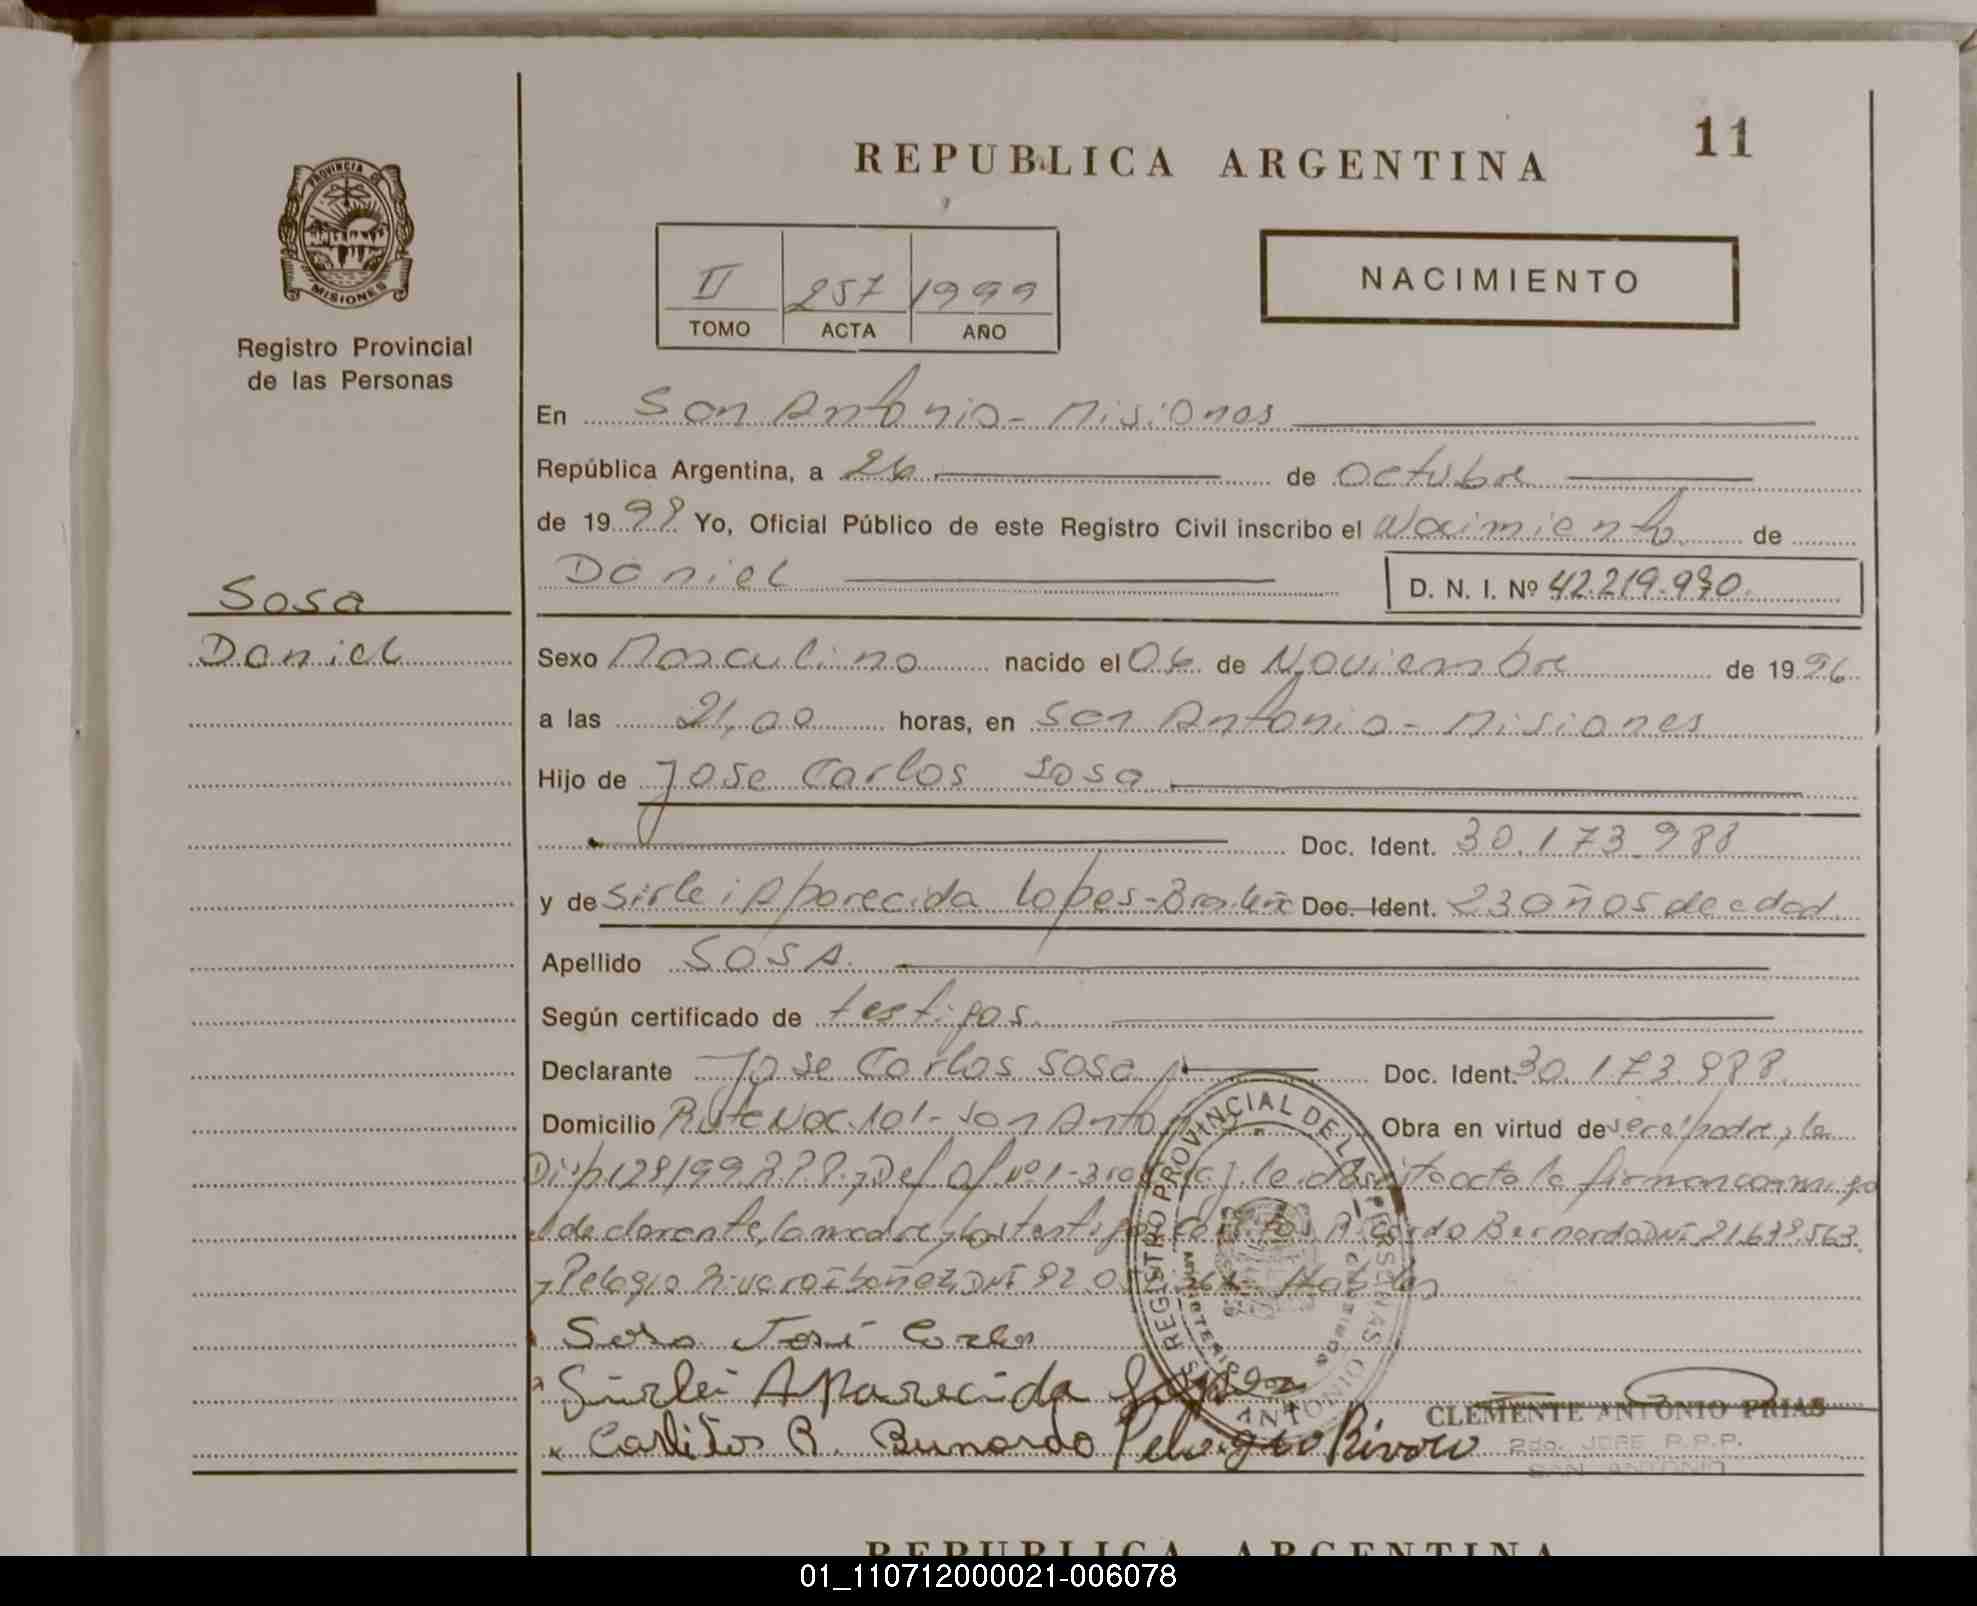 REPUBLICA ARGENTINA
11
PROVINCIA D
MISIONES
Registro Provincial
de las Personas
II 257 1999
TOMO ACTA AÑO
NACIMIENTO
En San Antonio - Misiones
República Argentina, a 26 de Octubre
de 1999 Yo, Oficial Público de este Registro Civil inscribo el Nacimiento de
Daniel D. N. I. Nº 42.219.930.
Sosa
Daniel
Sexo Masculino nacido el 06 de Noviembre de 1996
a las 21,00 horas, en San Antonio - Misiones
Hijo de Jose Carlos Sosa
Doc. Ident. 30.173.988
y de Sirlei Aparecida Lopes - Brasileña Doc. Ident. 23 años de edad
Apellido SOSA
Según certificado de testigos
Declarante Jose Carlos Sosa Doc. Ident. 30.173.988
Domicilio Ruta Nac. 101 - San Antonio Obra en virtud de ser el padre, la
Disp. 128/99 R.P.P. y Def. Of. Nº 1 leida esta acta la firman conmigo
el declarante, la madre y los testigos Carlitos Ricardo Bernardo DNI 21.638.563
y Pelagio Rivero Ibañez DNI 92.0
Sosa José Carlos
Sirlei Aparecida Lopes
Carlitos R. Bernardo Pelagio Rivero
REGISTRO PROVINCIAL DE LAS PERSONAS
CLEMENTE ANTONIO PRIAS
2do. JEFE R.P.P.
SAN ANTONIO
REPUBLICA ARGENTINA
01_110712000021-006078